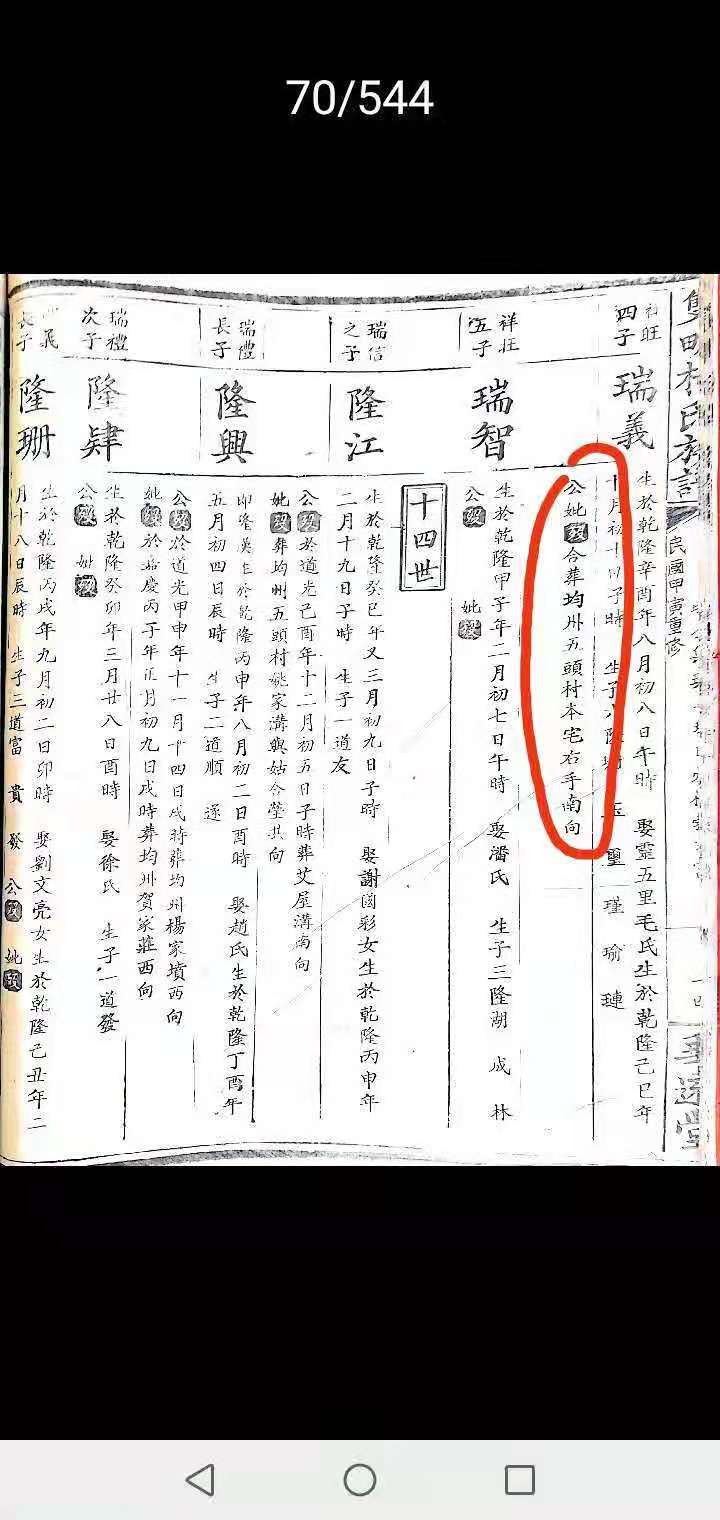 70/544
民國甲寅重修
四子
瑞義
生於乾隆辛酉年八月初八日午時 娶靈五里毛氏生於乾隆己巳年
十月初十日子時 生子六隆 玉 璽 瑾 瑜 璉
公妣歿合葬均州五頭村本宅右手南向
祥旺
五子
瑞智
生於乾隆甲子年二月初七日午時 娶潘氏 生子三隆湖 成 林
公歿 妣歿
十四世
瑞信
之子
隆江
生於乾隆癸巳年又三月初九日子時 娶謝國彩女生於乾隆丙申年
二月十九日子時 生子一道友
公歿於道光己酉年十二月初五日子時葬艾屋溝南向
妣歿葬均州五頭村姚家溝與姑合塋共向
瑞禮
長子
隆興
即隆英生於乾隆丙申年八月初二日酉時 娶趙氏生於乾隆丁酉年
五月初四日辰時 生子二道順 遂
公歿於道光甲申年十一月十四日戌時葬均州楊家墳西向
妣歿於嘉慶丙子年正月初九日戌時葬均州賀家莊西向
瑞禮
次子
隆肂
生於乾隆癸卯年三月廿八日酉時 娶徐氏 生子一道發
公歿 妣歿
長子
隆珊
生於乾隆丙戌年九月初二日卯時 娶劉文亮女生於乾隆己丑年二
月十八日辰時 生子三道富 貴 發 公歿 妣歿